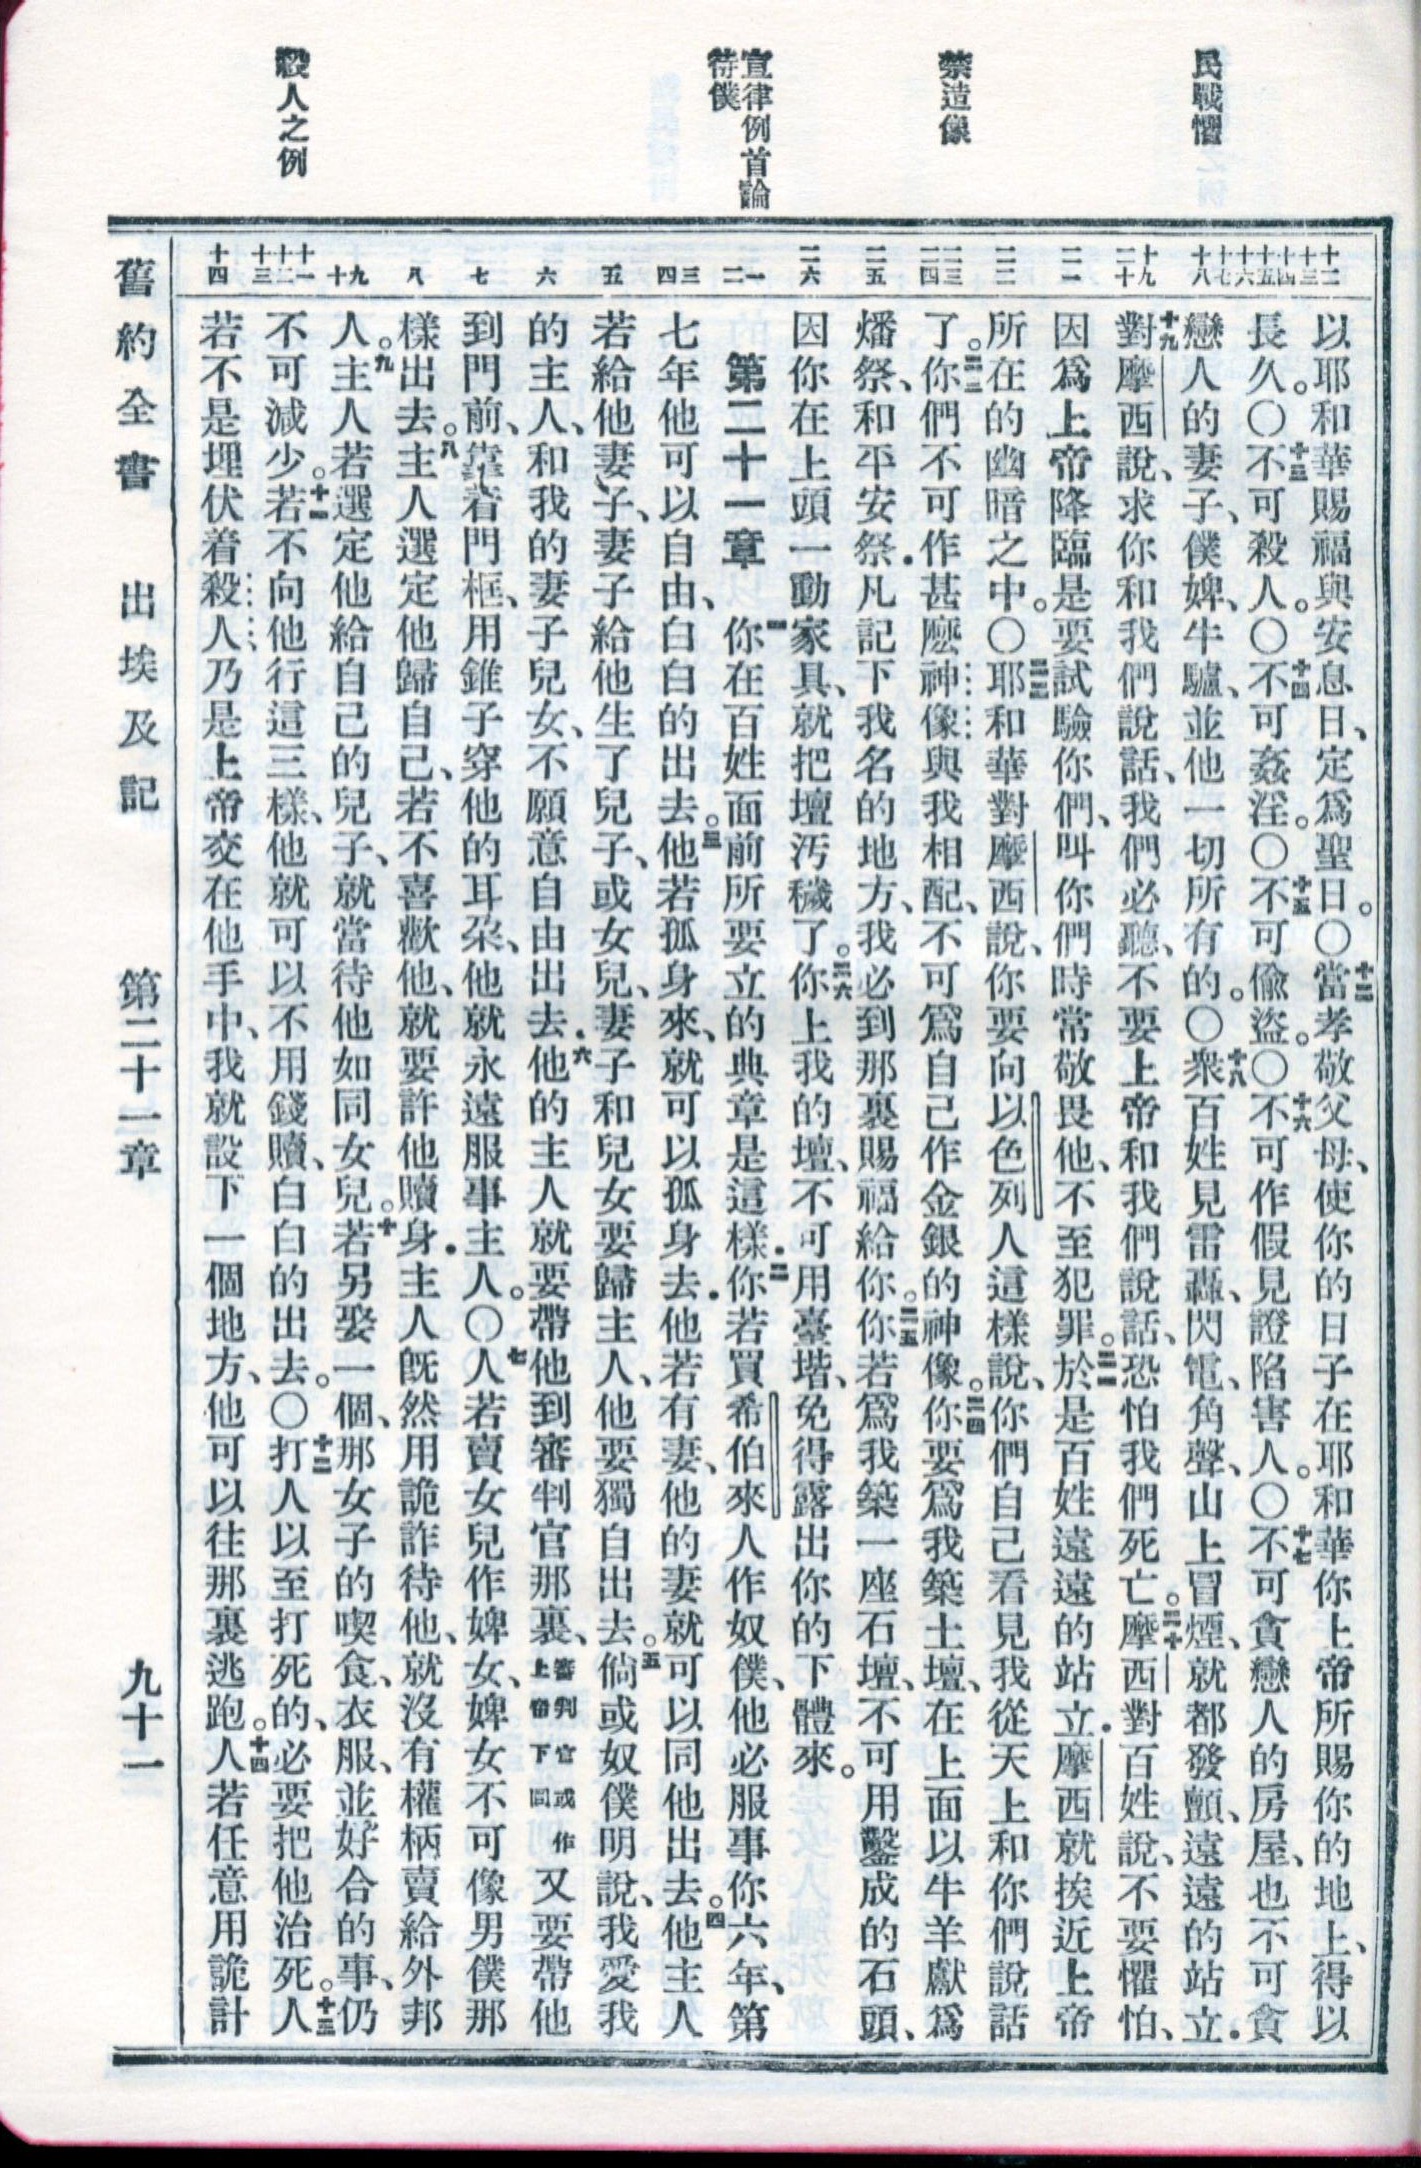 民戰懼
禁造像
宣律例首論
待僕
殺人之例
十二 十三 十四 十五 十六 十七 十八 十九 二十 二一 二二 二三 二四 二五 二六 一 二 三 四 五 六 七 八 九 十 十一 十二 十三 十四
以耶和華賜福與安息日、定爲聖日。〇十二當孝敬父母、使你的日子在耶和華你上帝所賜你的地上、得以
長久。〇十三不可殺人。〇十四不可姦淫。〇十五不可偸盜。〇十六不可作假見證陷害人。〇十七不可貪戀人的房屋、也不可貪
戀人的妻子、僕婢、牛驢、並他一切所有的。〇十八衆百姓見雷轟、閃電、角聲、山上冒煙、就都發顫、遠遠的站立．
十九對摩西說、求你和我們說話、我們必聽、不要上帝和我們說話、恐怕我們死亡。二十摩西對百姓說、不要懼怕、
因爲上帝降臨是要試驗你們、叫你們時常敬畏他、不至犯罪。二一於是百姓遠遠的站立．摩西就挨近上帝
所在的幽暗之中。〇二二耶和華對摩西說、你要向以色列人這樣說、你們自己看見我從天上和你們說話
了。二三你們不可作甚麽神像與我相配、不可爲自己作金銀的神像。二四你要爲我築土壇、在上面以牛羊獻爲
燔祭、和平安祭．凡記下我名的地方、我必到那裏賜福給你。二五你若爲我築一座石壇、不可用鑿成的石頭、
因你在上頭一動家具、就把壇汚穢了。二六你上我的壇、不可用臺堦、免得露出你的下體來。
第二十一章　一你在百姓面前所要立的典章是這樣．二你若買希伯來人作奴僕、他必服事你六年、第
七年他可以自由、白白的出去。三他若孤身來、就可以孤身去．他若有妻、他的妻就可以同他出去。四他主人
若給他妻子、妻子給他生了兒子、或女兒、妻子和兒女要歸主人、他要獨自出去。五倘或奴僕明說、我愛我
的主人、和我的妻子兒女、不願意自由出去．六他的主人就要帶他到審判官那裏、審判官或作上帝下同又要帶他
到門前、靠着門框、用錐子穿他的耳朶、他就永遠服事主人。〇七人若賣女兒作婢女、婢女不可像男僕那
樣出去。八主人選定他歸自己、若不喜歡他、就要許他贖身．主人旣然用詭詐待他、就沒有權柄賣給外邦
人。九主人若選定他給自己的兒子、就當待他如同女兒。十若另娶一個、那女子的喫食、衣服、並好合的事、仍
不可減少。十一若不向他行這三樣、他就可以不用錢贖、白白的出去。〇十二打人以至打死的、必要把他治死。十三人
若不是埋伏着殺人乃是上帝交在他手中、我就設下一個地方、他可以往那裏逃跑。十四人若任意用詭計
舊約全書　出埃及記　第二十一章　九十一